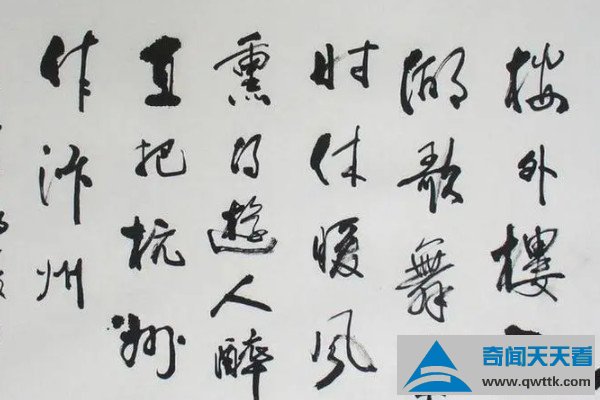 楼外樓
湖歌舞
时休暖风
熏得遊人醉
直把杭州
作汴州
奇闻天天看
www.qwttk.com